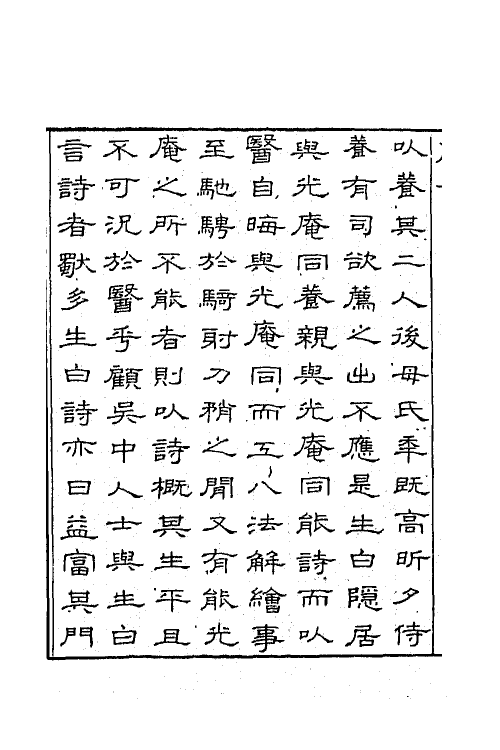 以養其二人後母氏年既高昕夕侍
養有司欲薦之出不應是生白隱居
與光庵同養親與光庵同能詩而以
醫自晦與光庵同而工八法解繪事
至馳騁於騎射刀矟之閒又有能光
庵之所不能者則以詩概其生平且
不可況於醫乎顧吳中人士與生白
言詩者歇多生白詩亦曰益富其門